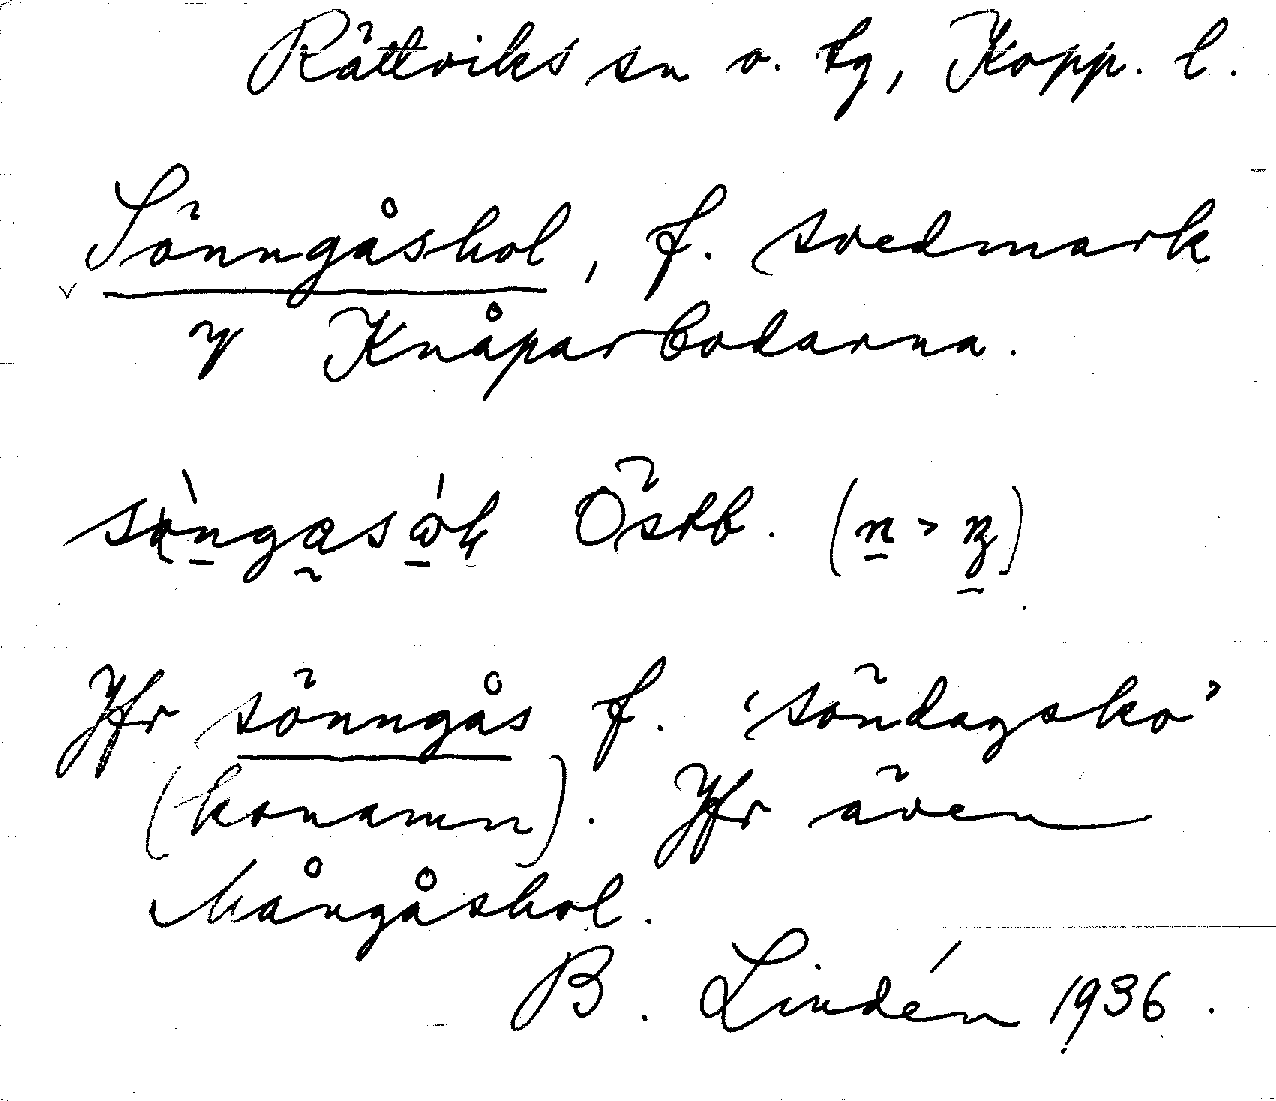 Rättviks sn o. tg, Kopp. l.
Sönngåshol, f. svedmark
y Knåparbodarna.
Östb. (n > ŋ)
Jfr sönngås f. 'söndagsko'
(konamn). Jfr även
Mångåshol.
B. Lindén 1936.